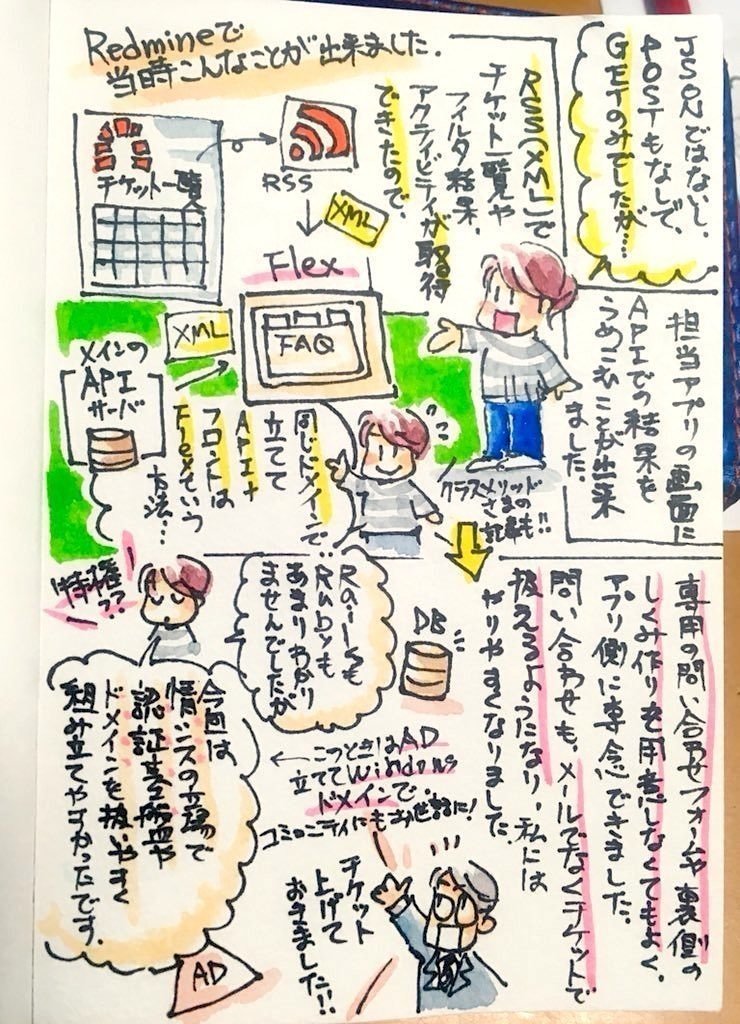 Redmineで
当時こんなことが出来ました.
JSONではないし、
POSTもなしで、
GETのみでしたが…
RSS(XML)で
チケット一覧や
フィルタ結果、
アクティビティが取得
できたので、
チケット一覧
RSS
XML
Flex
FAQ
XML
メインの
API
サーバ
担当アプリの画面に
APIでの結果を
うめこむことが出来
ました。
同じドメインで
立てて
API+
フロントは
Flexという
方法…
クラスメソッド
さまの
記事も!!
特権??
Railsも
Rubyも
あまりわかり
ませんでしたが
DB
専用の問い合わせフォームや裏側の
しくみ作りを用意しなくてもよく、
アプリ側に専念できました。
問い合わせも、メールでなくチケットで
扱えるようになり、私には
やりやすくなりました。
今回は
情シスの立場で
認証基盤や
ドメインを扱いやすく
組み立てやすかったです.
← このときはAD
立ててWindows
ドメインで.
コミュニティにもお世話に!
チケット
上げて
おきました!!
AD